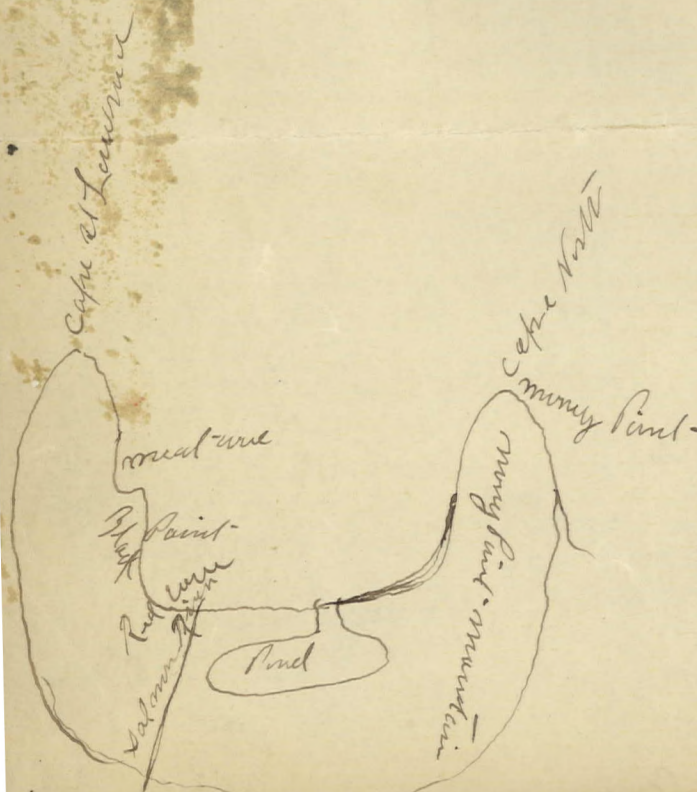 Cape St Lawrence
Cape North
money Point
meat cove
Black Point
Red cove
Salmon River
Pond
money Point mountain